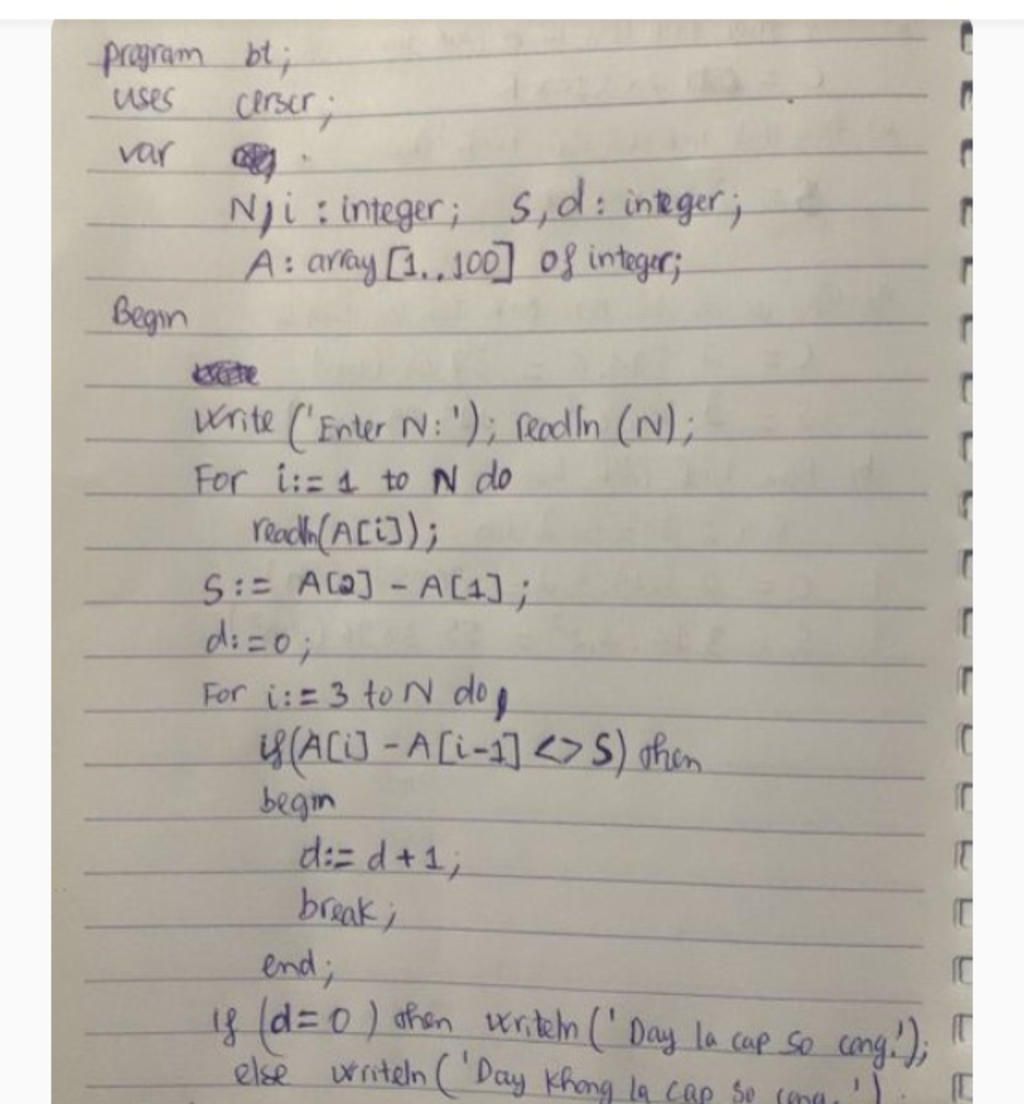 program bt;
uses cerscr;
var
N, i : integer; S, d : integer;
A : array [1..100] of integer;
Begin
write ('Enter N:'); readln (N);
For i:= 1 to N do
readln(A[i]);
S:= A[2] - A[1];
d:=0;
For i:= 3 to N do
if(A[i] - A[i-1] <> S) then
begin
d:= d + 1;
break;
end;
if (d=0) then writeln ('Day la cap so cong.');
else writeln ('Day khong la cap so cong.').